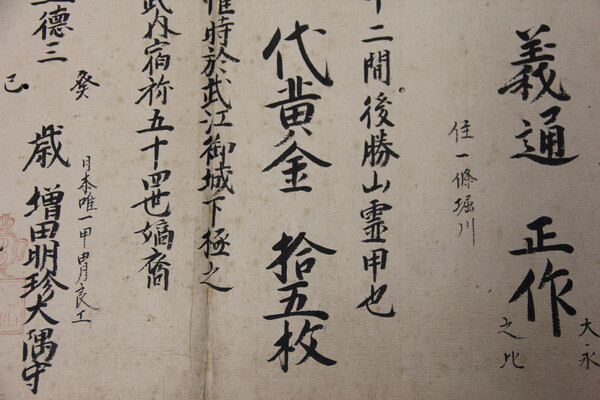 義通 正作
大永
之比
住一條堀川
十二間後勝山靈甲也
代黄金 拾五枚
惟時於武江御城下極之
武内宿祢五十四世嫡裔
德三
癸
巳
歳
日本唯一甲冑良工
増田明珍大隅守